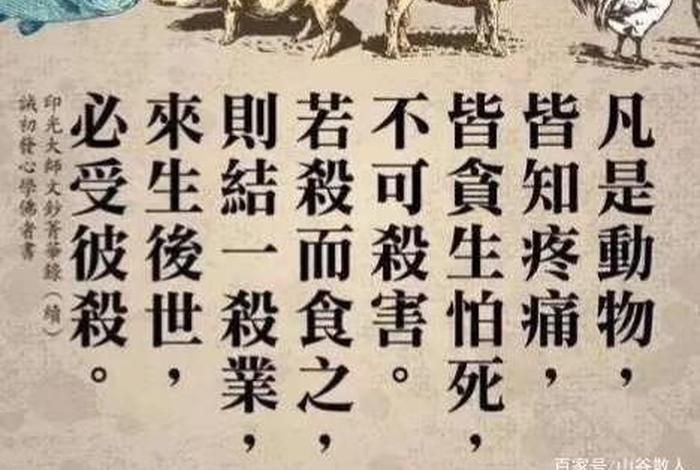 凡是動物，
皆知疼痛，
皆貪生怕死，
不可殺害。
若殺而食之，
則結一殺業，
來生後世，
必受彼殺。
印光大師文鈔菁華錄（續）
誡初發心學佛者書
百家号/山谷散人